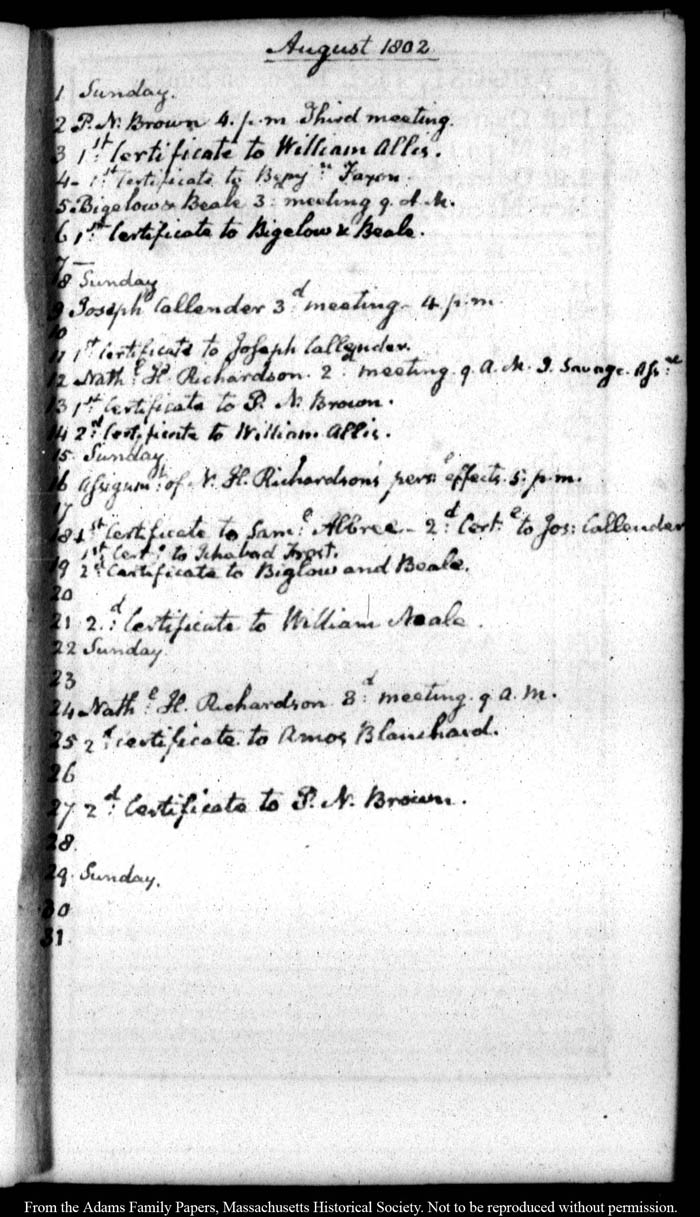 August 1802
1 Sunday.
2 P. N. Brown 4. p.m Third meeting.
3 1st Certificate to William Allis.
4 1st Certificate to Benjn Faxon.
5 Bigelow & Beale 3: meeting 9 A.M.
6 1st Certificate to Bigelow & Beale.
7 —
8 Sunday
9 Joseph Callender 3d meeting 4 p.m
10
11 1st Certificate to Joseph Callender.
12 Nathl H. Richardson. 2: meeting. 9 A.M. J. Savage. Assne
13 1st Certificate to P. N. Brown.
14 2d Certificate to William Allis.
15. Sunday
16 Assignmt of N. H. Richardson's persl effects. 5. p.m.
17
18 1st Certificate to Saml Albree — 2d Certe to Jos: Callender
1st Certe to Ichabod Frost.
19 2d Certificate to Biglow and Beale.
20
21 2d: Certificate to William Neale.
22 Sunday.
23
24 Nathl H. Richardson 3d meeting. 9 a.m.
25 2d certificate to Amos Blanchard.
26
27 2d Certificate to P. N. Brown.
28.
29. Sunday.
30
31
From the Adams Family Papers, Massachusetts Historical Society. Not to be reproduced without permission.